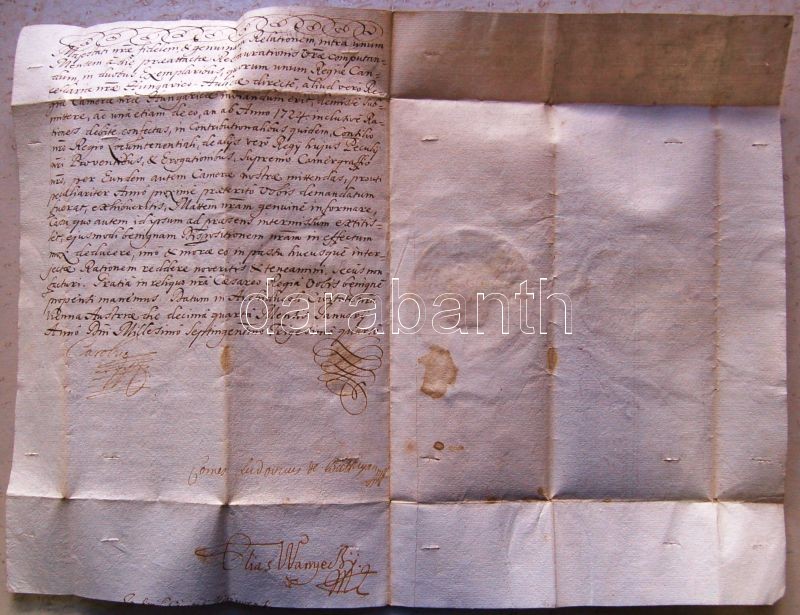 Majestati nrae fidelem, & genuinam Relationem, intra unum
Mensem a die praeattactae Restaurationis Vrae computan-
dum, in duobus Exemplaribus, quorum unum Regiae Can-
cellariae nrae Hungarico Aulicae directe, aliud vero Re-
giae Camerae nrae Hungaricae
mittere, ac una etiam de eo, an ab Anno 1724 inclusive Ra-
tiones debite confectas, in Contributionalibus quidem, Consilio
nro Regio Locumtenentiali, de alys vero Regy hujus
nri Proventibus, & Erogationibus, Supremo
nro, per Eundem autem Camerae nostrae mittendas, prouti
peculiariter Anno proxime praeterito Vobis demandatum
fuerat, exhibueritis, Mattem nram genuine informare,
Casu quo autem id ipsum ad praesens intermissum extitis-
set, ejusmodi benignam Dispositionem nram in effectum
mox deducere, imo & morae eo in passu hucusque inter-
jectae Rationem reddere noveritis & teneamini. Secus non
facturi. Gratia in reliquo nra Caesareo Regia Vobis benigne
propensi manemus. Datum in Archi Ducali Civitate nra
Vienna Austriae die decima quarta Mensis January
Anno Dni Millesimo Septingentesimo quarto
Carolus
Comes Ludovicus de Batthyan
Elias Wanyeczÿ
darabanth